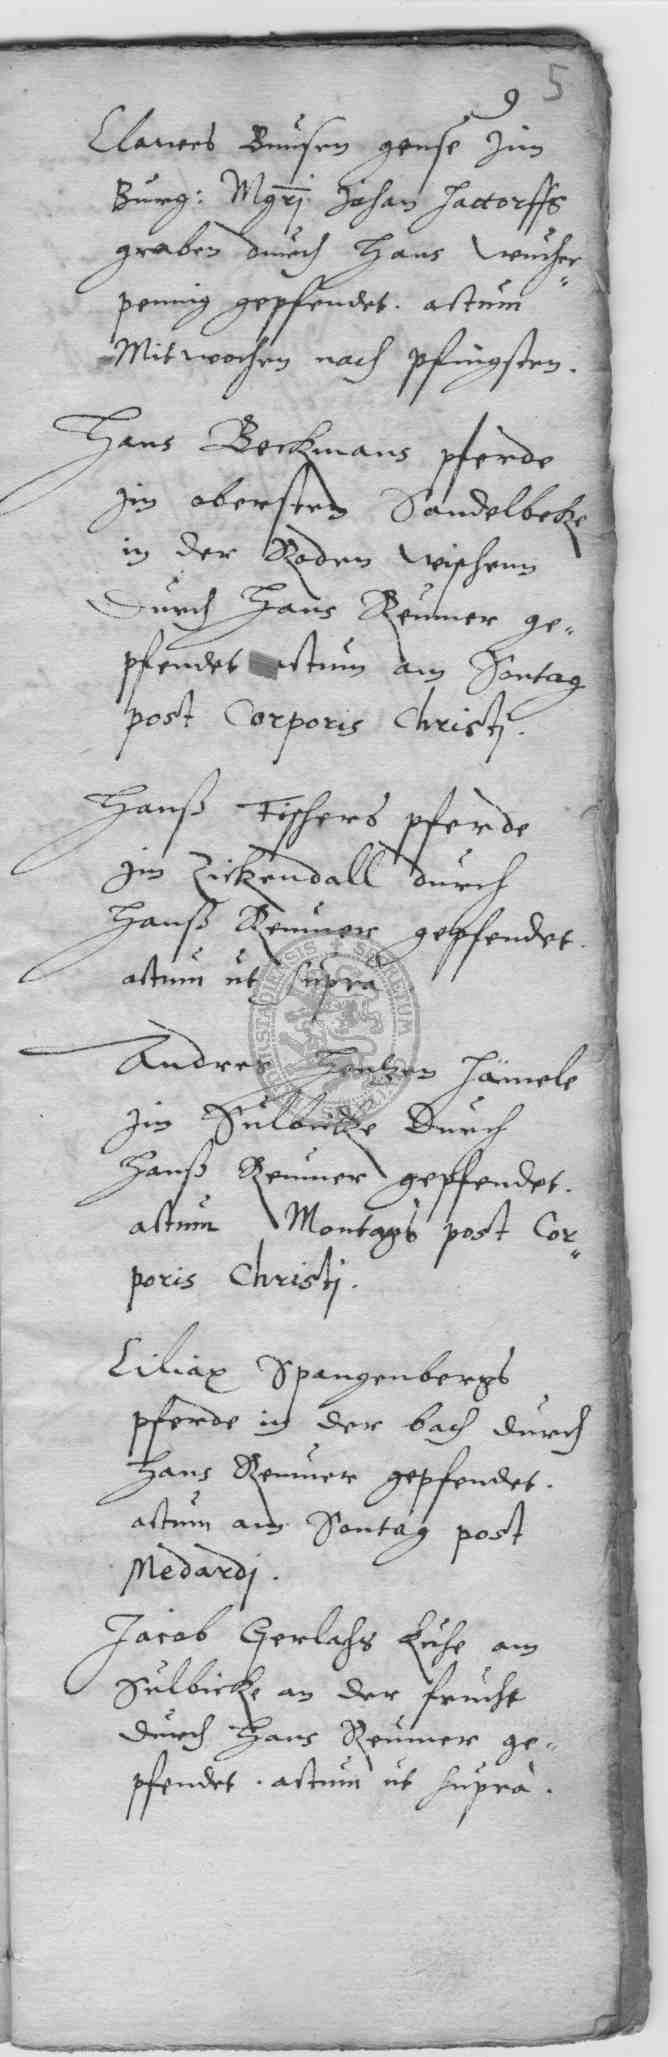 9 5
Clawes Bunsen gense Jm
Burg: Mgrj Johan Hattorffs
graben durch Hans Wucher„
pennig gepfendet. actum
Mitwochen nach pfingsten.
Hans Beckmans pferde
jm obersten Sandelbeke
in der Roden wischenn
Durch Hans Reumer ge„
pfendet actum am Sontag
post Corporis Christj.
Hanß Fischers pferde
jm Zickendall durch
Hanß Reumer gepfendet.
actum ut supra
Andres Hentzen hämele
jm Sulbicke Durch
Hanß Reumer gepfendet.
actum Montags post Cor„
poris Christj.
Ciliax Spangenbergs
pferde in der bach durch
Hans Reumer gepfendet.
actum am Sontag post
Medardj.
Jacob Gerlachs Kuhe am
Sulbicke an der frucht
durch Hans Reumer ge„
pfendet. actum ut supra.